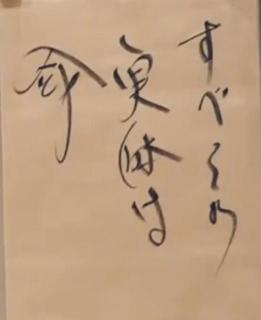 すべての
実体は
命